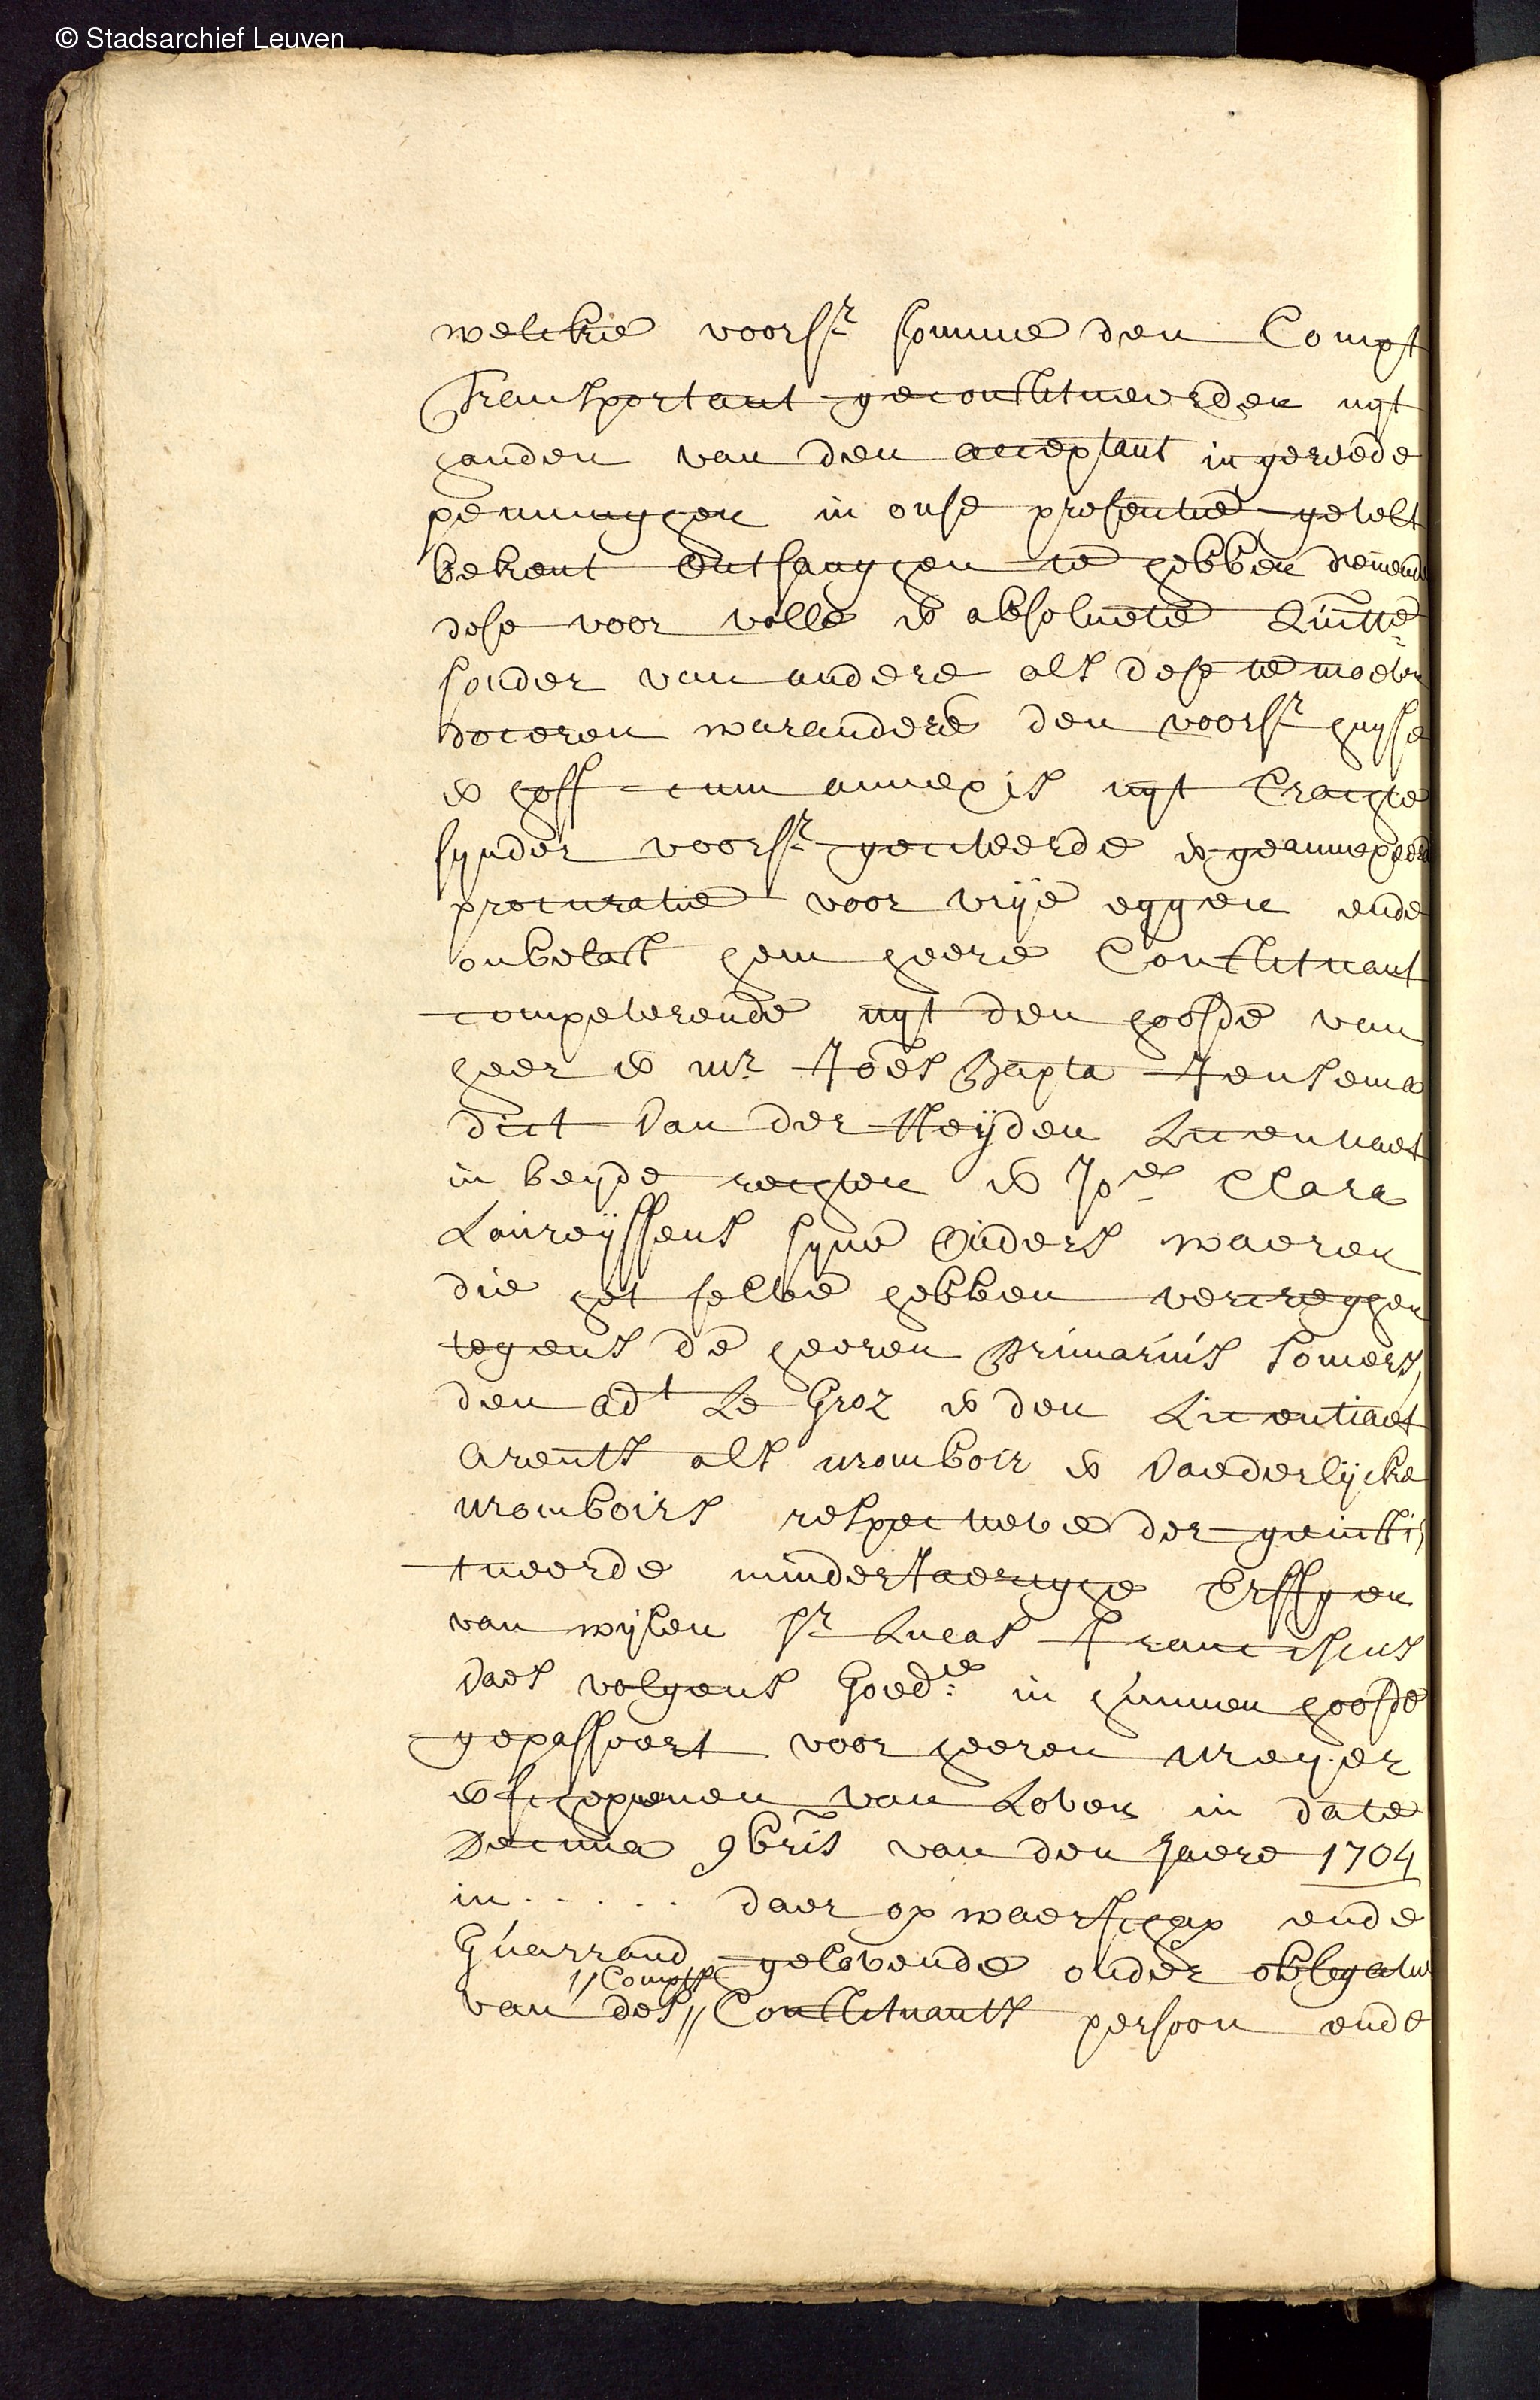 © Stadsarchief Leuven
welcke voorsr somme den Compt
Transportant geconstitueerden uyt
handen van den acceptant in gereede
penninghen in onse presentie getelt
bekent ontfanghen te hebben dienende
dese voor volle ende absoluete Quittie
sonder van andere als dese te moeten
doceren waranderé den voorsr huyse
ende hoff cum annexis uyt crachte
synder voorsr geciteerde ende geannexeerde
procuratie voor vrije eyghen ende
onbelast hem heere Constituant
competerende uyt den hoofde van
heer ende mr Joes Bapta Jensema
dict Van der Heijden Licentiaet
in beyde rechten ende Joe Clara
Laureijssens syne Ouders waeren
die het selve hebben vercreghen
tegens de heeren Primarius Somers,
den adt Le Groz ende den Licentiaet
Arents als momboir ende Vaederlijcke
momboirs respectieve der geinsti,
tueerde minderjaerighe Erffgen
van wijlen Sr Lucas Franciscus
Vaes volgens Goede in hunnen hoofde
gepasseert voor heeren Meyer
ende schepenen van Loven in date
Decima 9bris van den Jaere 1704
in . . . . . daer op waerschap ende
Guarrand gelovende onder obligatie
// Compts
van des // Constituants persoon ende